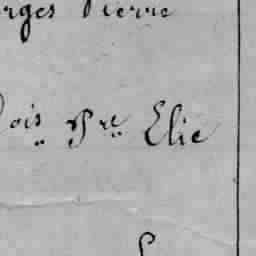 rges Pierre
ois Pre Elie